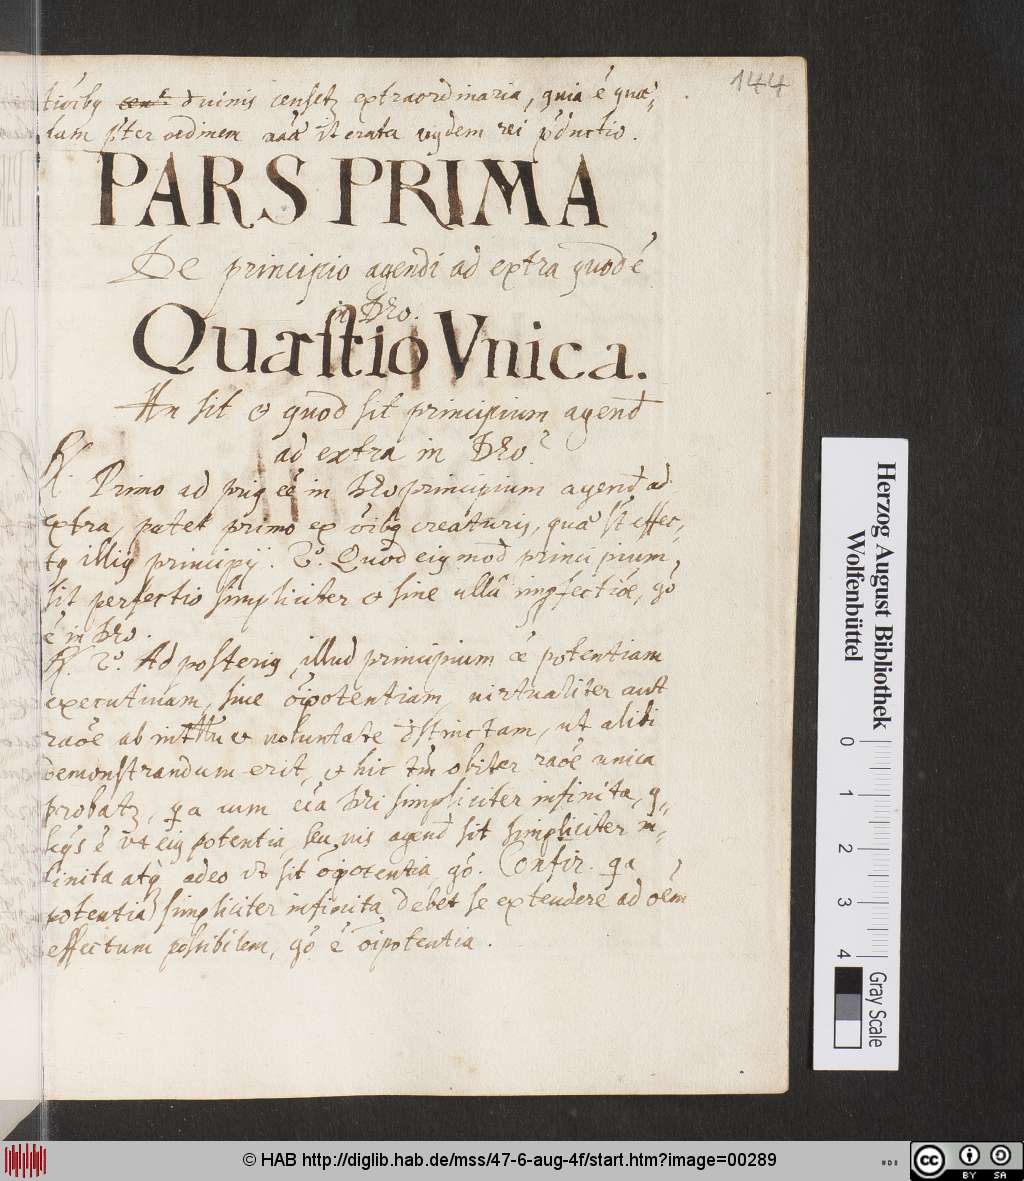 144
divinis censetꝫ extraordinaria, quia ē quæ-
dam rei
PARS PRIMA
De principio agendi ad extra quod ē
in Deo.
Quæstio Vnica.
An sit et quod sit principium agend
ad extra in Deo?
R. Primo ad priꝰ in Deo principium agend ad
extra, patet primo ex oībꝰ creaturis, quæ st effec-
tꝰ illiꝰ principij. 2o. Quod eiꝰmod principium
sit perfectio simpliciter et sine ullā impfectiōe, gō
ē in Deo.
R. 2o. Ad posteriꝰ, illud principium ēē potentiam
executivam, sive oīpotentiam, virtualiter aut
raōe ab et voluntate distinctam, ut alibi
demonstrandum erit, et hic tm̄ obiter raōe unica
probatꝫ, qa cum Dei simpliciter infinita,
ē ut eiꝰ potentia, seu vis agend sit simpliciter in-
finita atqꝫ adeo ut sit oīpotentia, gō. Confir. qa
potentia simpliciter infinita debet se extendere ad oēm
effectum possibilem, gō ē oīpotentia.
Herzog August Bibliothek
Wolfenbüttel
0 1 2 3 4
Gray Scale
© HAB http://diglib.hab.de/mss/47-6-aug-4f/start.htm?image=00289
cc BY SA